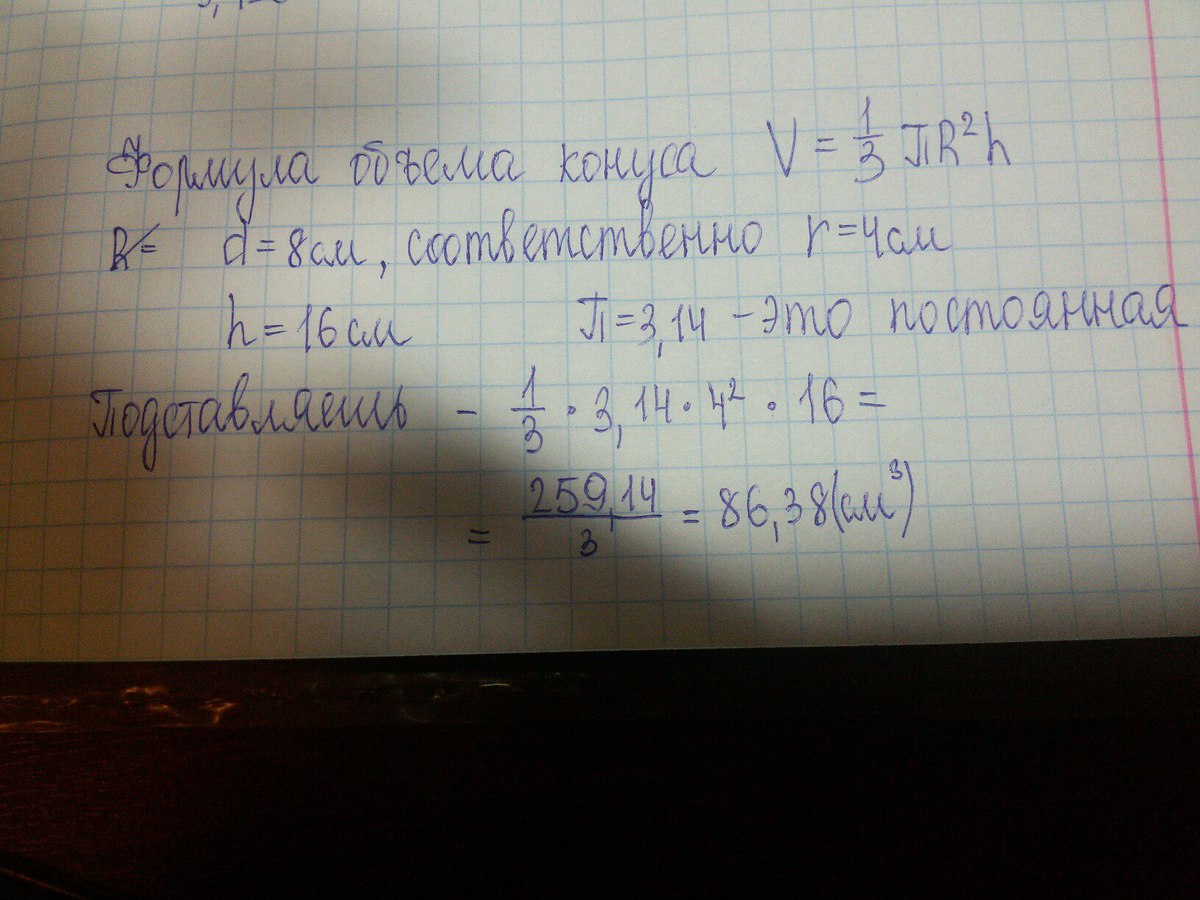 Формула объема конуса V = 1/3 ПR²h
R= d = 8см, соответственно r = 4см
h = 16см П = 3,14 - это постоянная
Подставляешь - 1/3 · 3,14 · 4² · 16 =
= 259,14/3 = 86,38(см³)